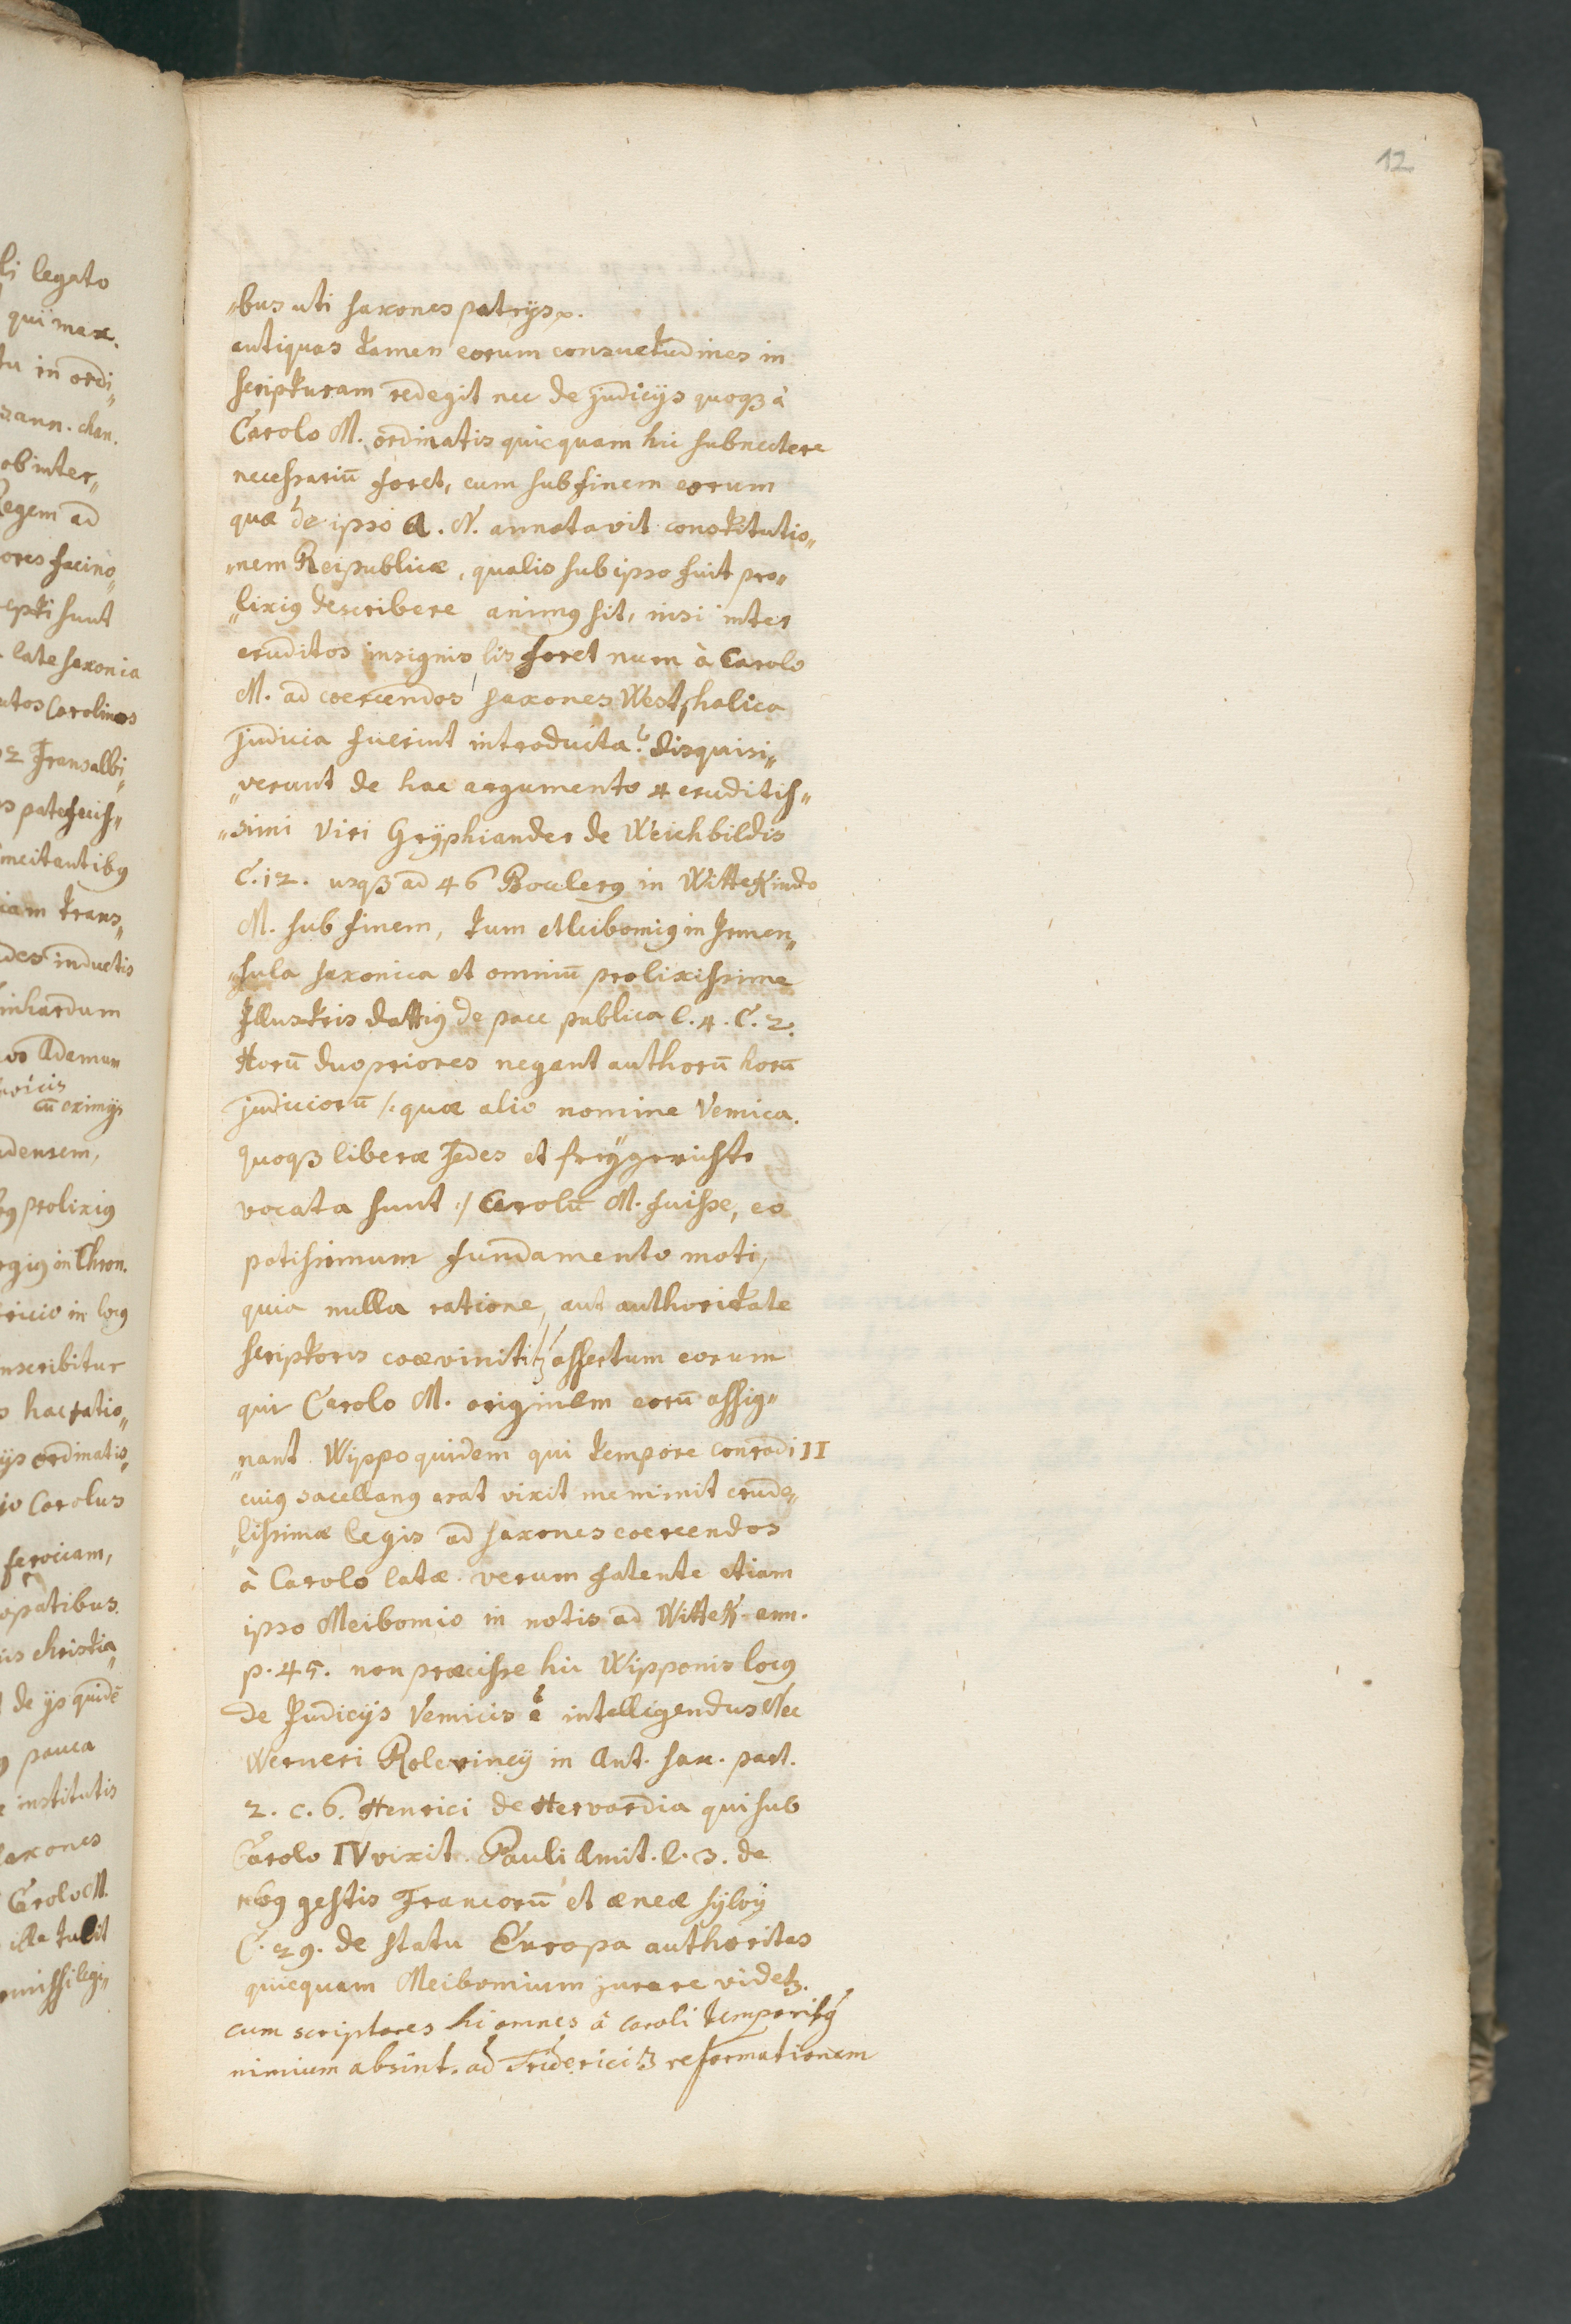 12
„bus uti saxones patrijs.
antiquas tamen eorum consuetudines in
scripturam redegit nec de judicijs quoqȝ à
Carolo M. ordinatis quicquam hic subnectere
necessariū foret, cum sub finem eorum
quæ de ipso A. N. annotavit constitutio„
„nem Reipublicæ, qualis sub ipso fuit pro„
„lixig describere animg sit, nisi inter
eruditos insignis lis foret num à Carolo
M. ad coercendos saxones Westphalica
judicia fuerint introducta? Disquisi„
„verunt de hac argumento 4 eruditis„
„simi Viri Gryphiander de Weichbildis
C. 12. usqȝ ad 46 Boclerg in WitteKindo
M. sub finem, tum et Meibomig in Irmen„
„sula saxonica et omniū prolixissime
Illustris dattig de pace publica l. 4. C. 2.
Horū duo priores negant authorū horū
judiciorū /: quæ alio nomine Vemica.
quoqȝ liberæ sedes et freygerichte
vocata sunt :/ Carolū M. fuisse, eo
potissimum fundamento moti,
quia nulla ratione, aut authoritate
scriptoris coævi nititȝ assertum eorum
qui Carolo M. originem eorū assig„
„nant. Wippo quidem qui tempore Conradi II
cuig sacellang erat vixit meminit crude„
„lissimæ legis ad saxones coercendos
à Carolo latæ. verum fatente etiam
ipso Meibomio in notis ad WitteK. ann.
p. 45. non præcisse hic Wipponis locg
de Judicijs Vemicis ē intelligendus Nec
Werneri Rolevincij in Ant. sax. part.
2. c. 6. Henrici de Hervordia qui sub
Carolo IV vixit. Pauli Æmil. l. 3. de
rebg gestis Francorū et æneæ sylvij
C. 29. de statu Europa authoritas
quicquam Meibomium jurare videtȝ.
cum scriptores hi omnes à Caroli temporibg
nimium absint. ad Friderici 3 reformationem